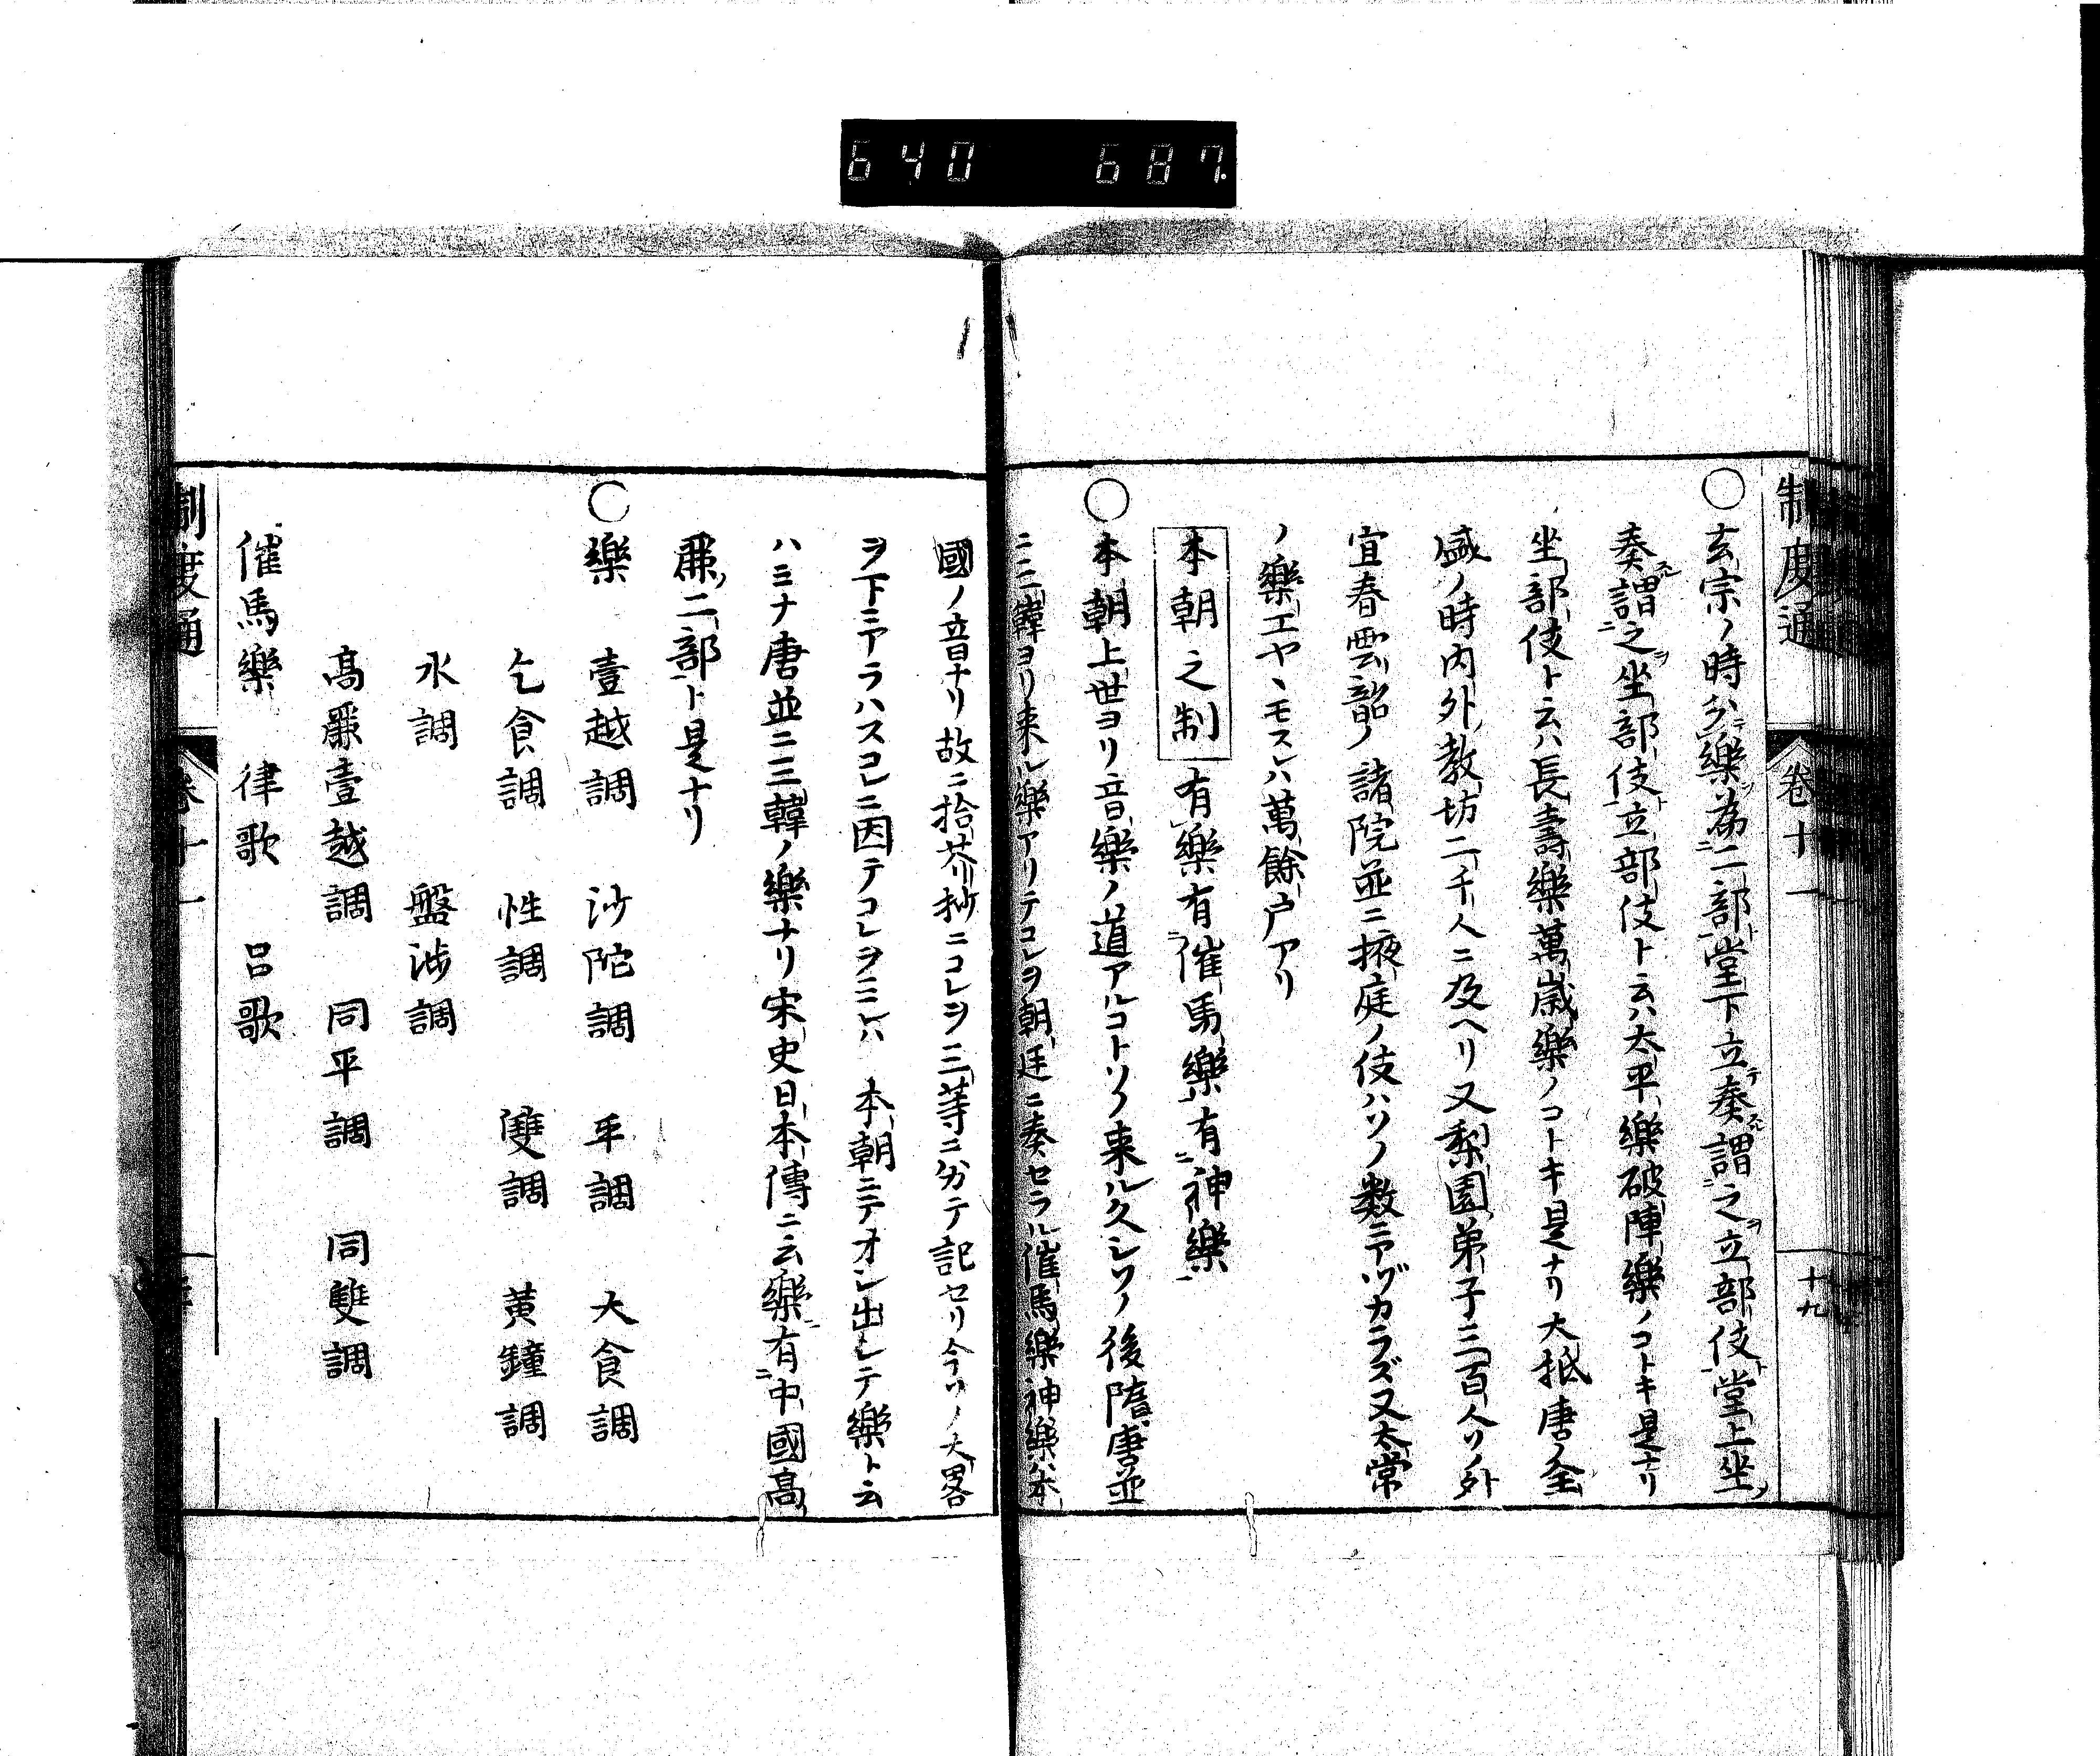 640 687.
制度通 卷十一 十九
○玄宗ノ時分テ樂ヲ為二二部ト一堂下立テ奏スル謂二之ヲ立部伎ト一堂上坐ノ
奏スル謂二之ヲ坐部伎ト一立部伎ト云ハ太平樂破陣樂ノコトキ是ナリ
坐部伎ト云ハ長壽樂萬歳樂ノコトキ是ナリ大抵唐ノ全
盛ノ時内外教坊二千人ニ及ヘリ又梨園弟子三百人ソノ外
宜春雲韶ノ諸院並ニ掖庭ノ伎ハソノ数ニアヅカラズ又太常
ノ樂工ヤヽモスレハ萬餘戸アリ
本朝之制 有樂有二催馬樂一有二神樂一
○本朝上世ヨリ音樂ノ道アルコトソノ来ル久シソノ後隋唐並
ニ三韓ヨリ来レル樂アリテコレヲ朝廷ニ奏セラル催馬樂神樂ハ本
國ノ音ナリ故ニ拾芥抄ニコレヲ三等ニ分テ記セリ今ソノ大畧
ヲ下ニアラハスコレニ因テコレヲミレハ 本朝ニテオシ出シテ樂ト云
ハミナ唐並ニ三韓ノ樂ナリ宋史日本傳ニ云樂有二中國高
麗ノ二部一ト是ナリ
○樂 壹越調 沙陀調 平調 大食調
乞食調 性調 雙調 黃鐘調
水調 盤渉調
高麗壹越調 同平調 同雙調
催馬樂 律歌 呂歌
制度通 卷十一